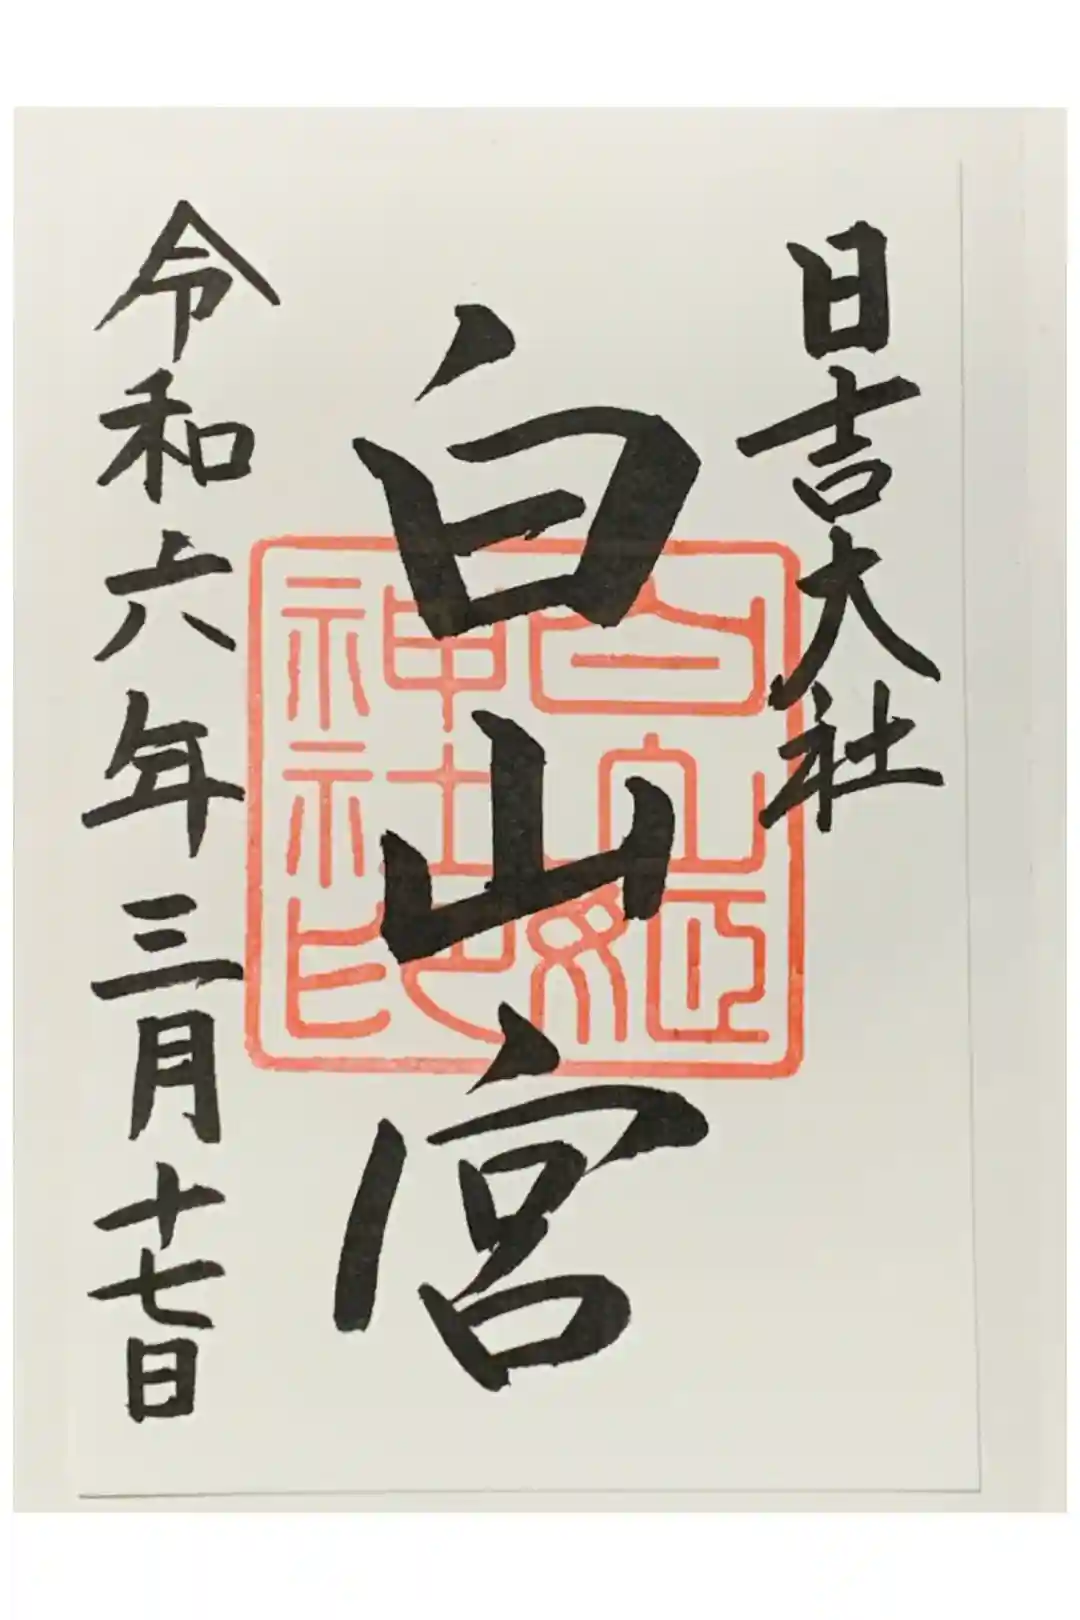 日吉大社
白山宮
令和六年三月十七日
白山姫
神社印